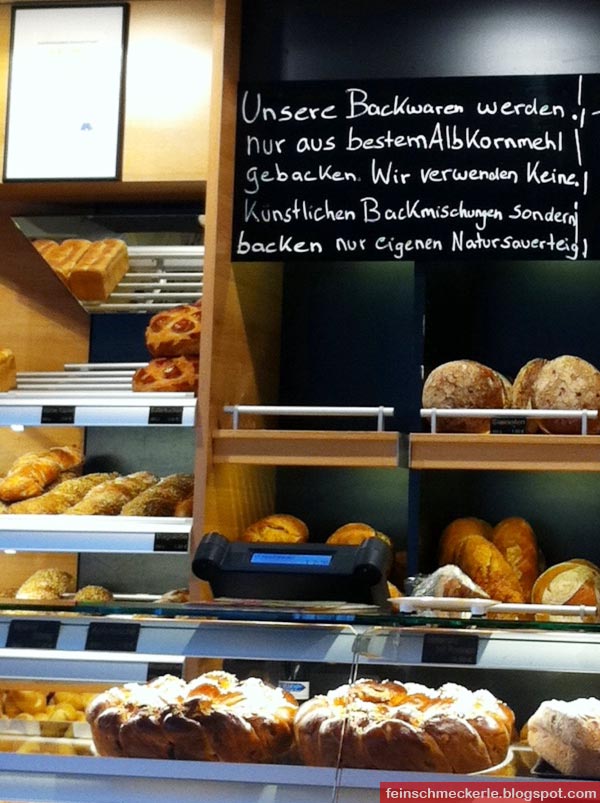 Unsere Backwaren werden !
nur aus bestem AlbKornmehl !
gebacken. Wir verwenden Keine !
Künstlichen Backmischungen sondern
backen nur eigenen Natursauerteig !
feinschmeckerle.blogspot.com